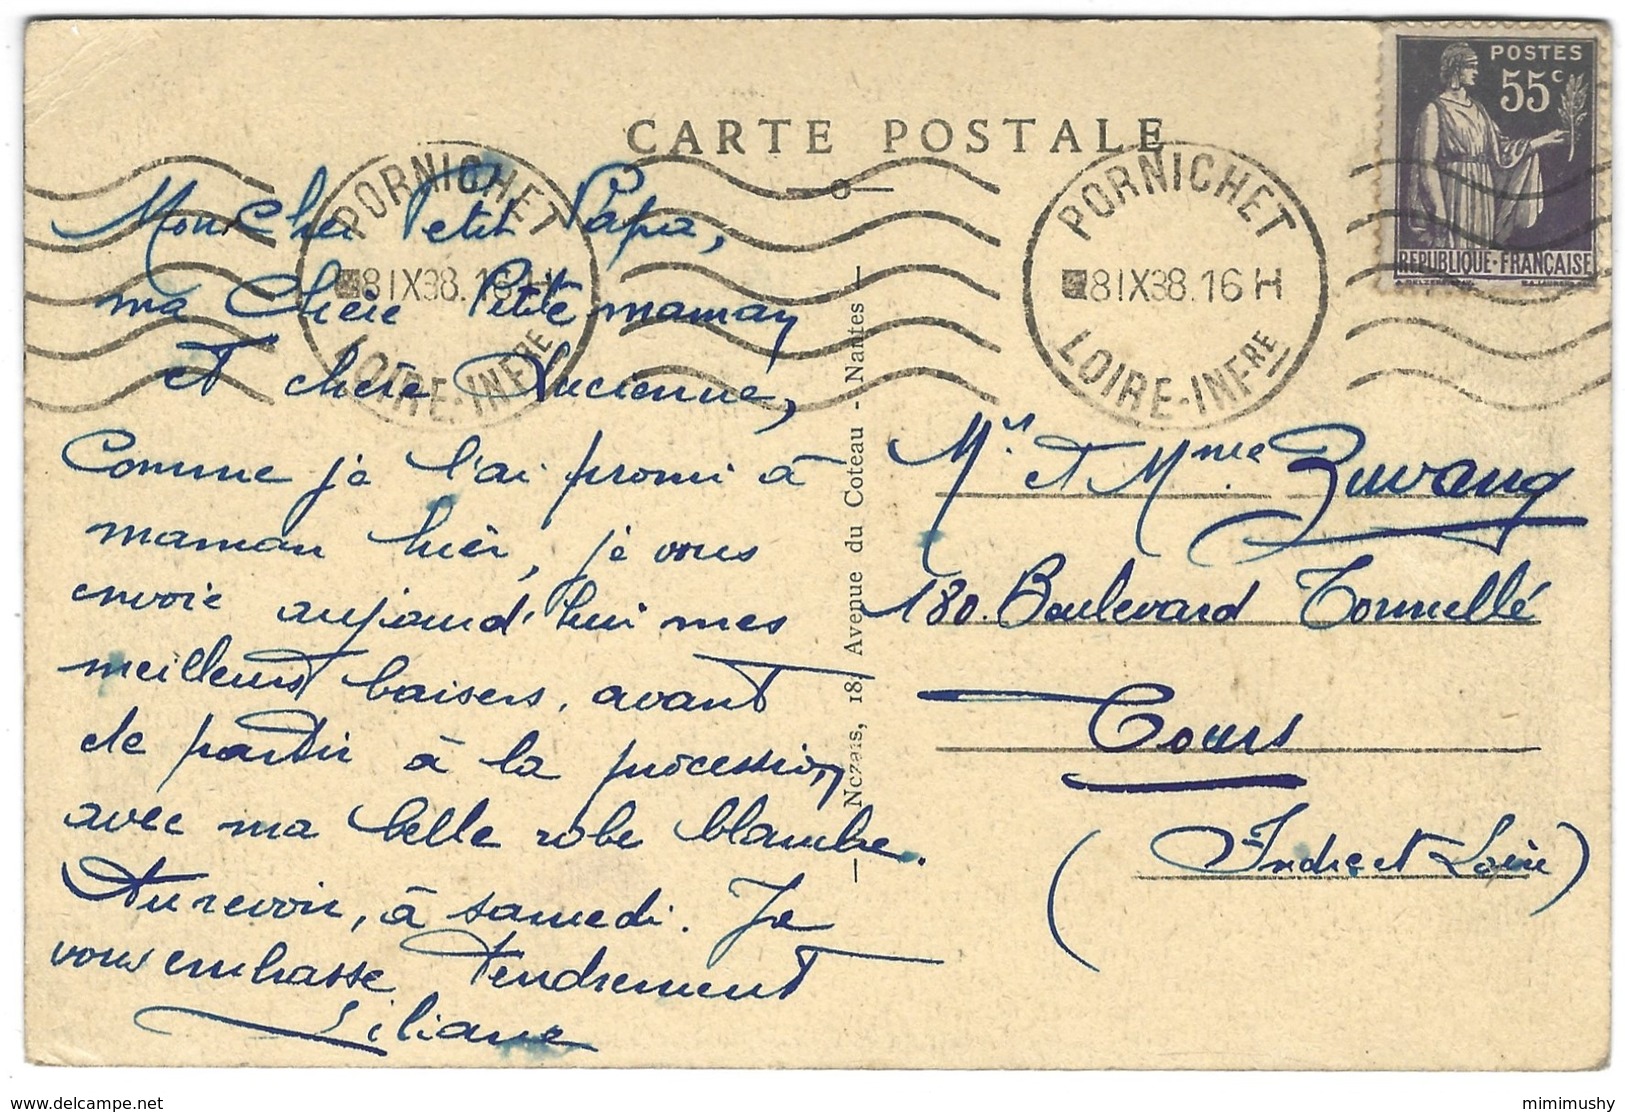 CARTE POSTALE
POSTES
55c
REPUBLIQUE-FRANÇAISE
PORNICHET
8 IX 38. 16 H
LOIRE-INFRE
PORNICHET
8 IX 38. 16 H
LOIRE-INFRE
Mon Cher Petit Papa,
ma Chère Petite maman
et chère Lucienne,
Comme je l'ai promi à
maman hier, je vous
envoie aujourd'hui mes
meilleurs baisers, avant
de partir à la procession
avec ma belle robe blanche.
Au revoir, à samedi. Je
vous embrasse tendrement
Liliane
18, Avenue du Coteau - Nantes —
Mr et Mme
180. Boulevard Tonnellé
Tours
(Indre et Loire)
www.delcampe.net
mimimushy